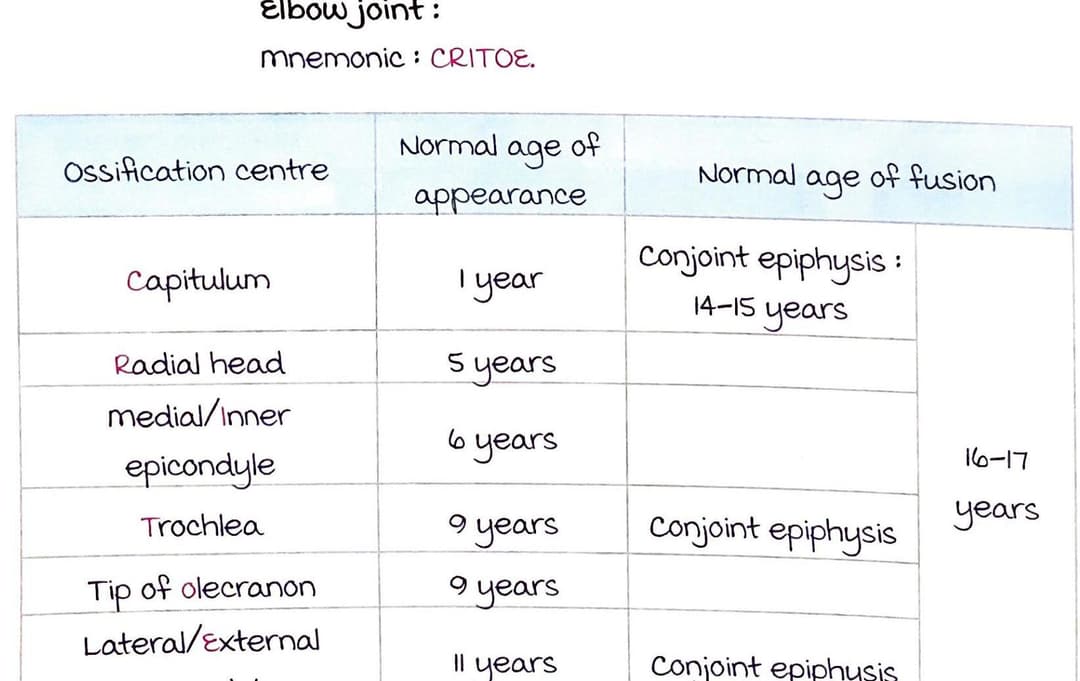 Elbow joint :
mnemonic : CRITOE.
Ossification centre
Normal age of
appearance
Normal age of fusion
Capitulum
1 year
Conjoint epiphysis :
14-15 years
Radial head
5 years
medial/Inner
epicondyle
6 years
16-17
years
Trochlea
9 years
Conjoint epiphysis
Tip of olecranon
9 years
Lateral/External
11 years
Conjoint epiphysis